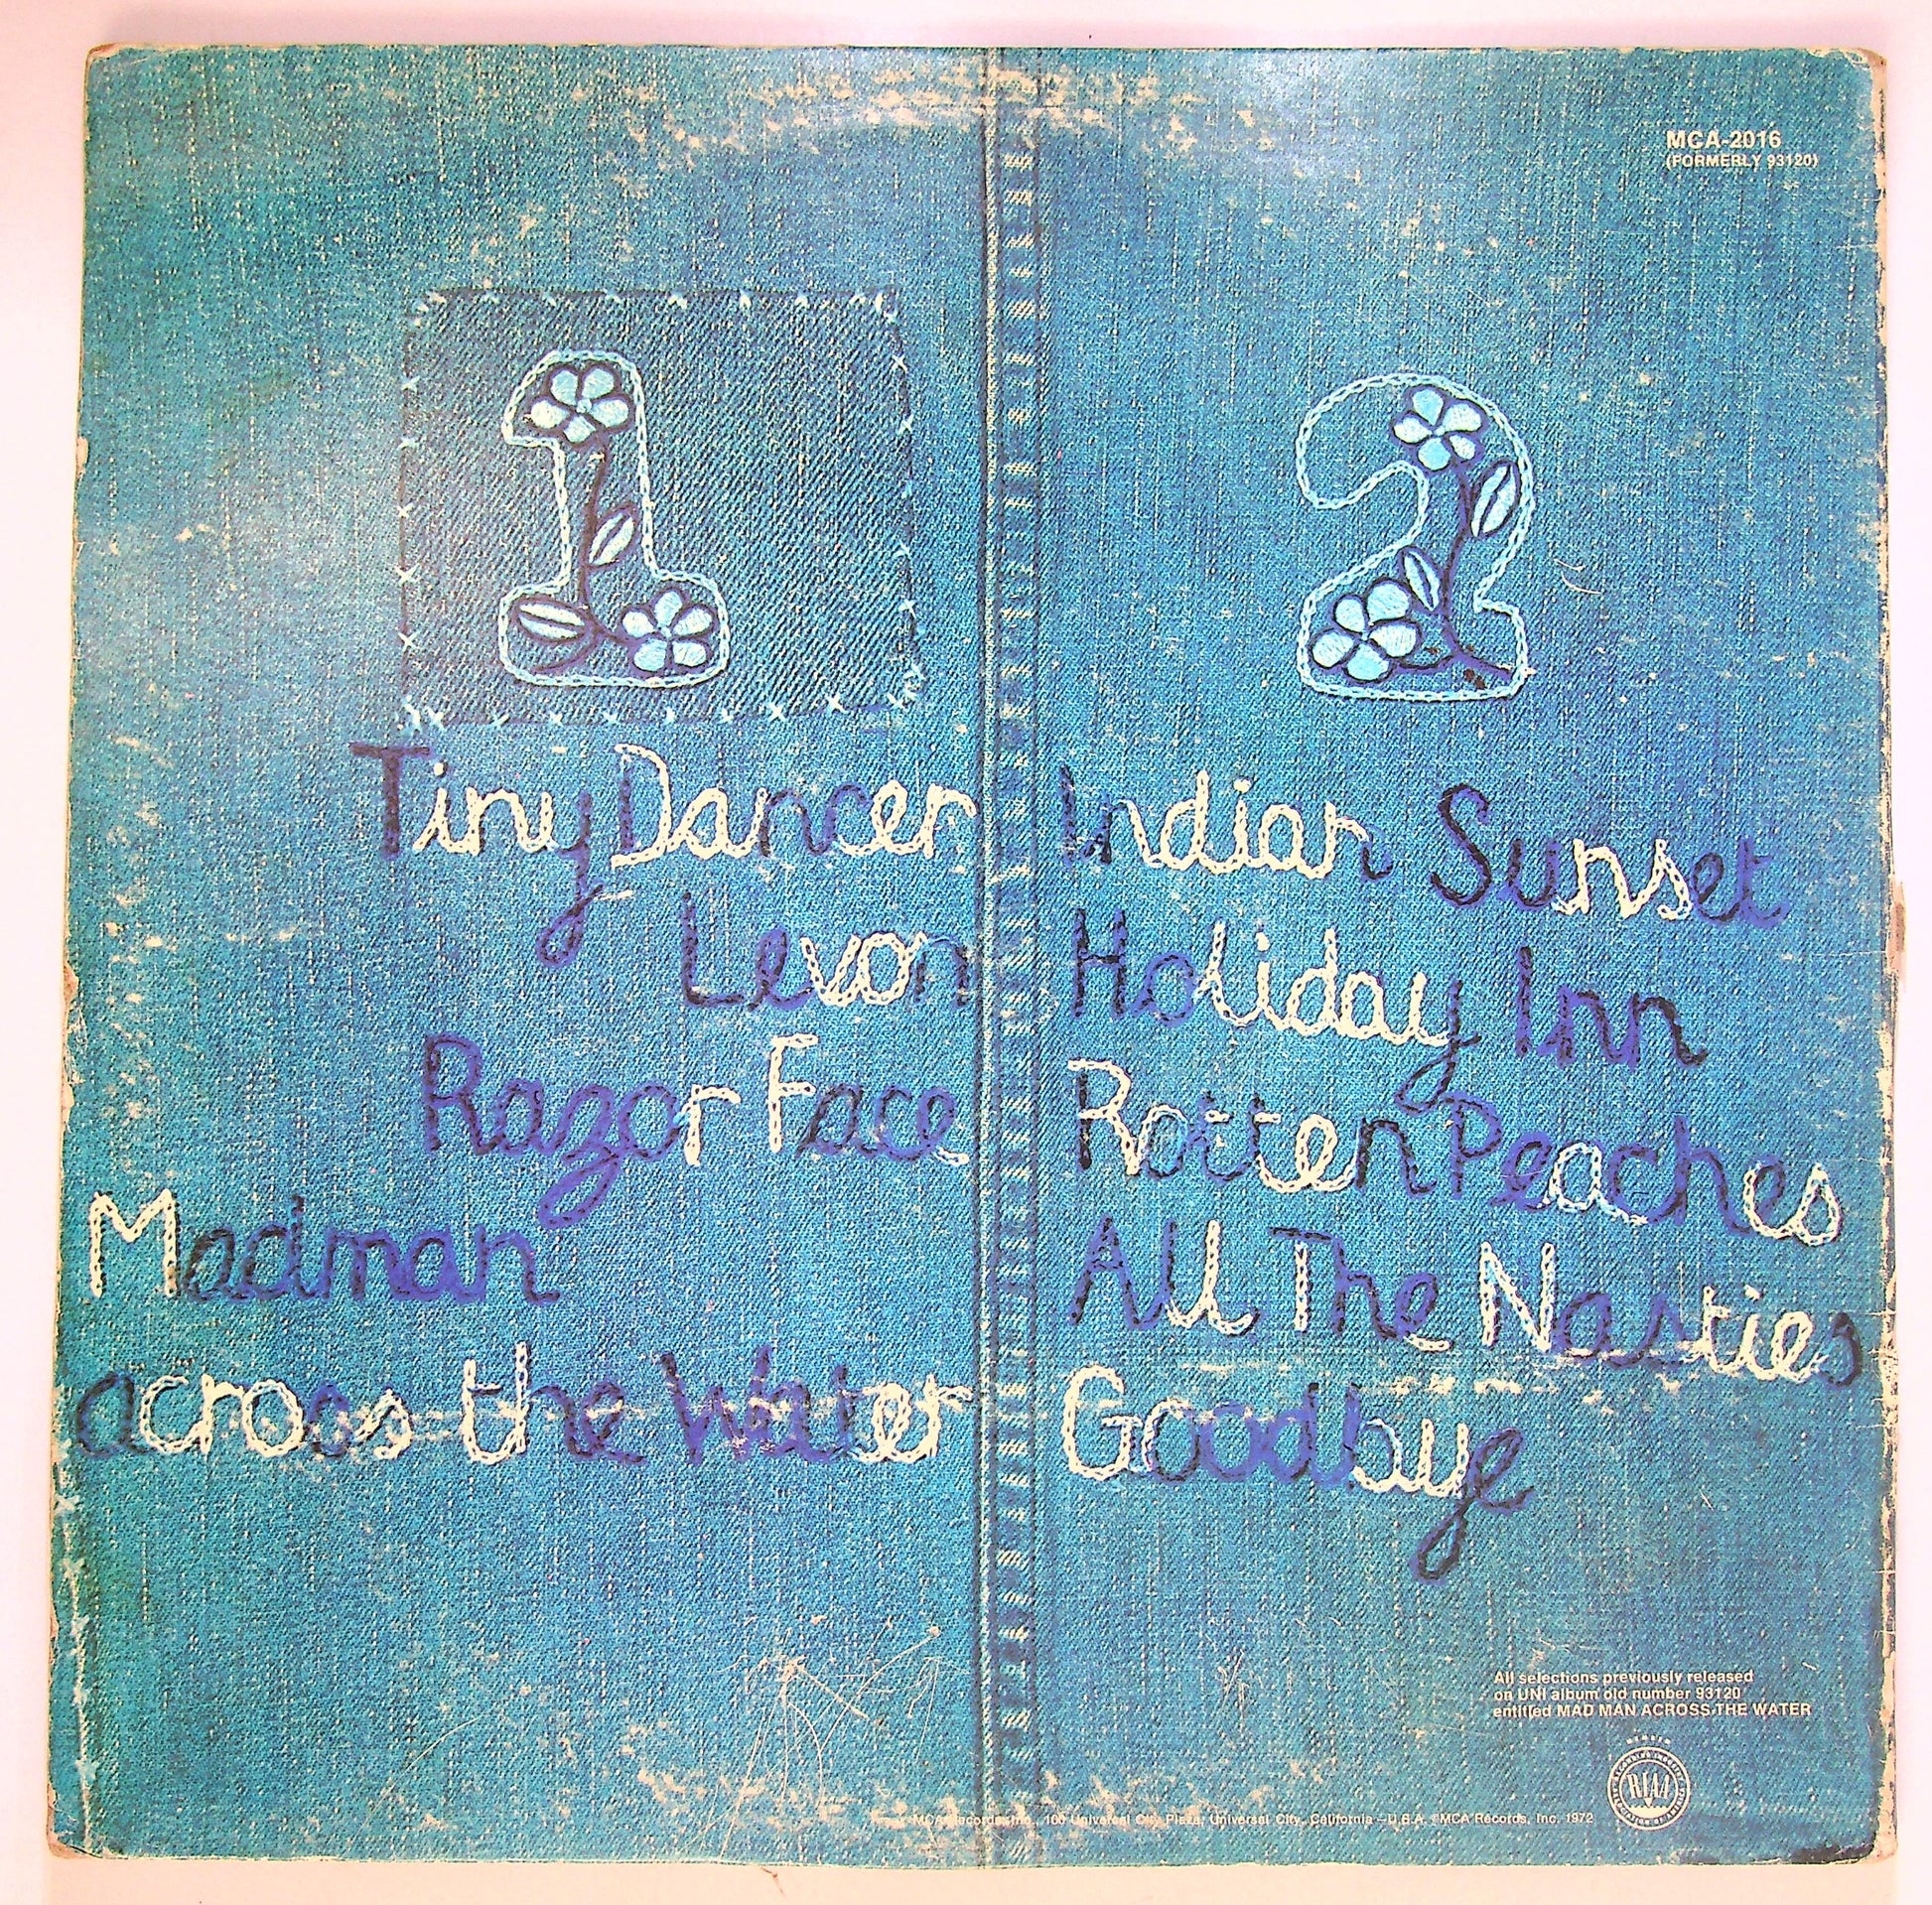 MCA-2016
(FORMERLY 93120)
1
Tiny Dancer
Levon
Razor Face
Madman
across the Water
2
Indian Sunset
Holiday Inn
Rotten Peaches
All The Nasties
Goodbye
All selections previously released
on UNI album old number 93120
entitled MAD MAN ACROSS THE WATER
MEMBER
RIAA
MCA Records, Inc., 100 Universal City Plaza, Universal City, California – U.S.A. MCA Records, Inc. 1972